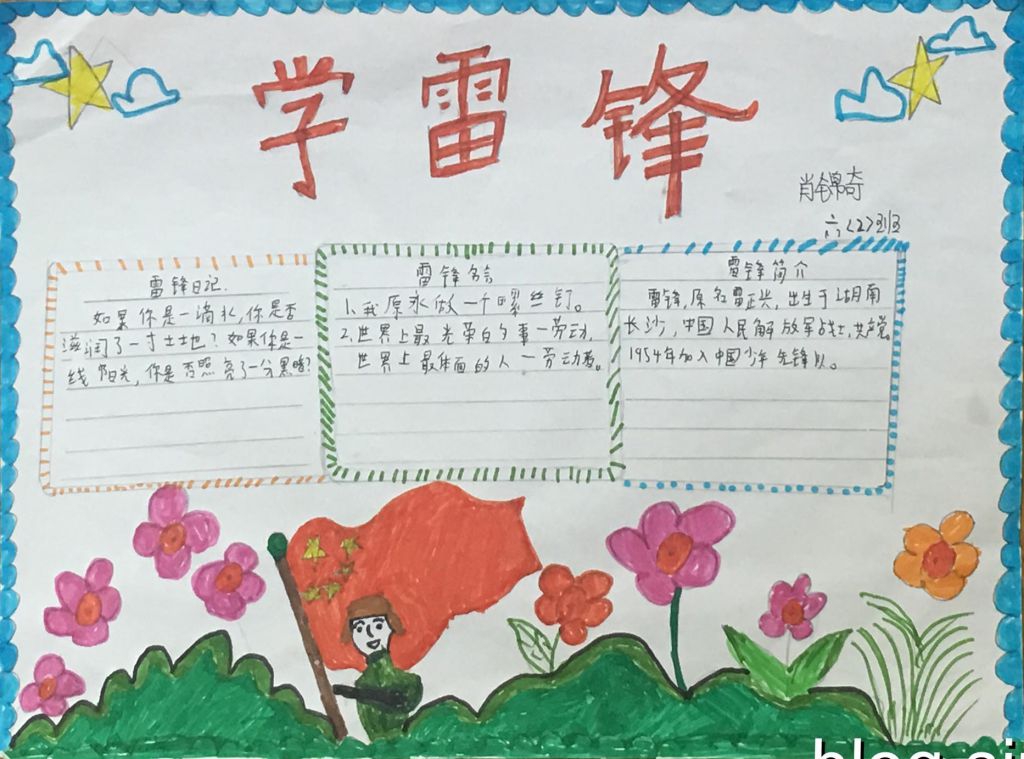 学雷锋
肖锦奇
六(2)班
雷锋日记.
如果你是一滴水,你是否
滋润了一寸土地?如果你是一
线阳光,你是否照亮了一分黑暗?
雷锋名言
1.我愿永做一个螺丝钉。
2.世界上最光荣的事一劳动,
世界上最体面的人一劳动者。
雷锋简介
雷锋,原名雷正兴,出生于湖南
长沙,中国人民解放军战士,共产党。
1954年加入中国少年先锋队。